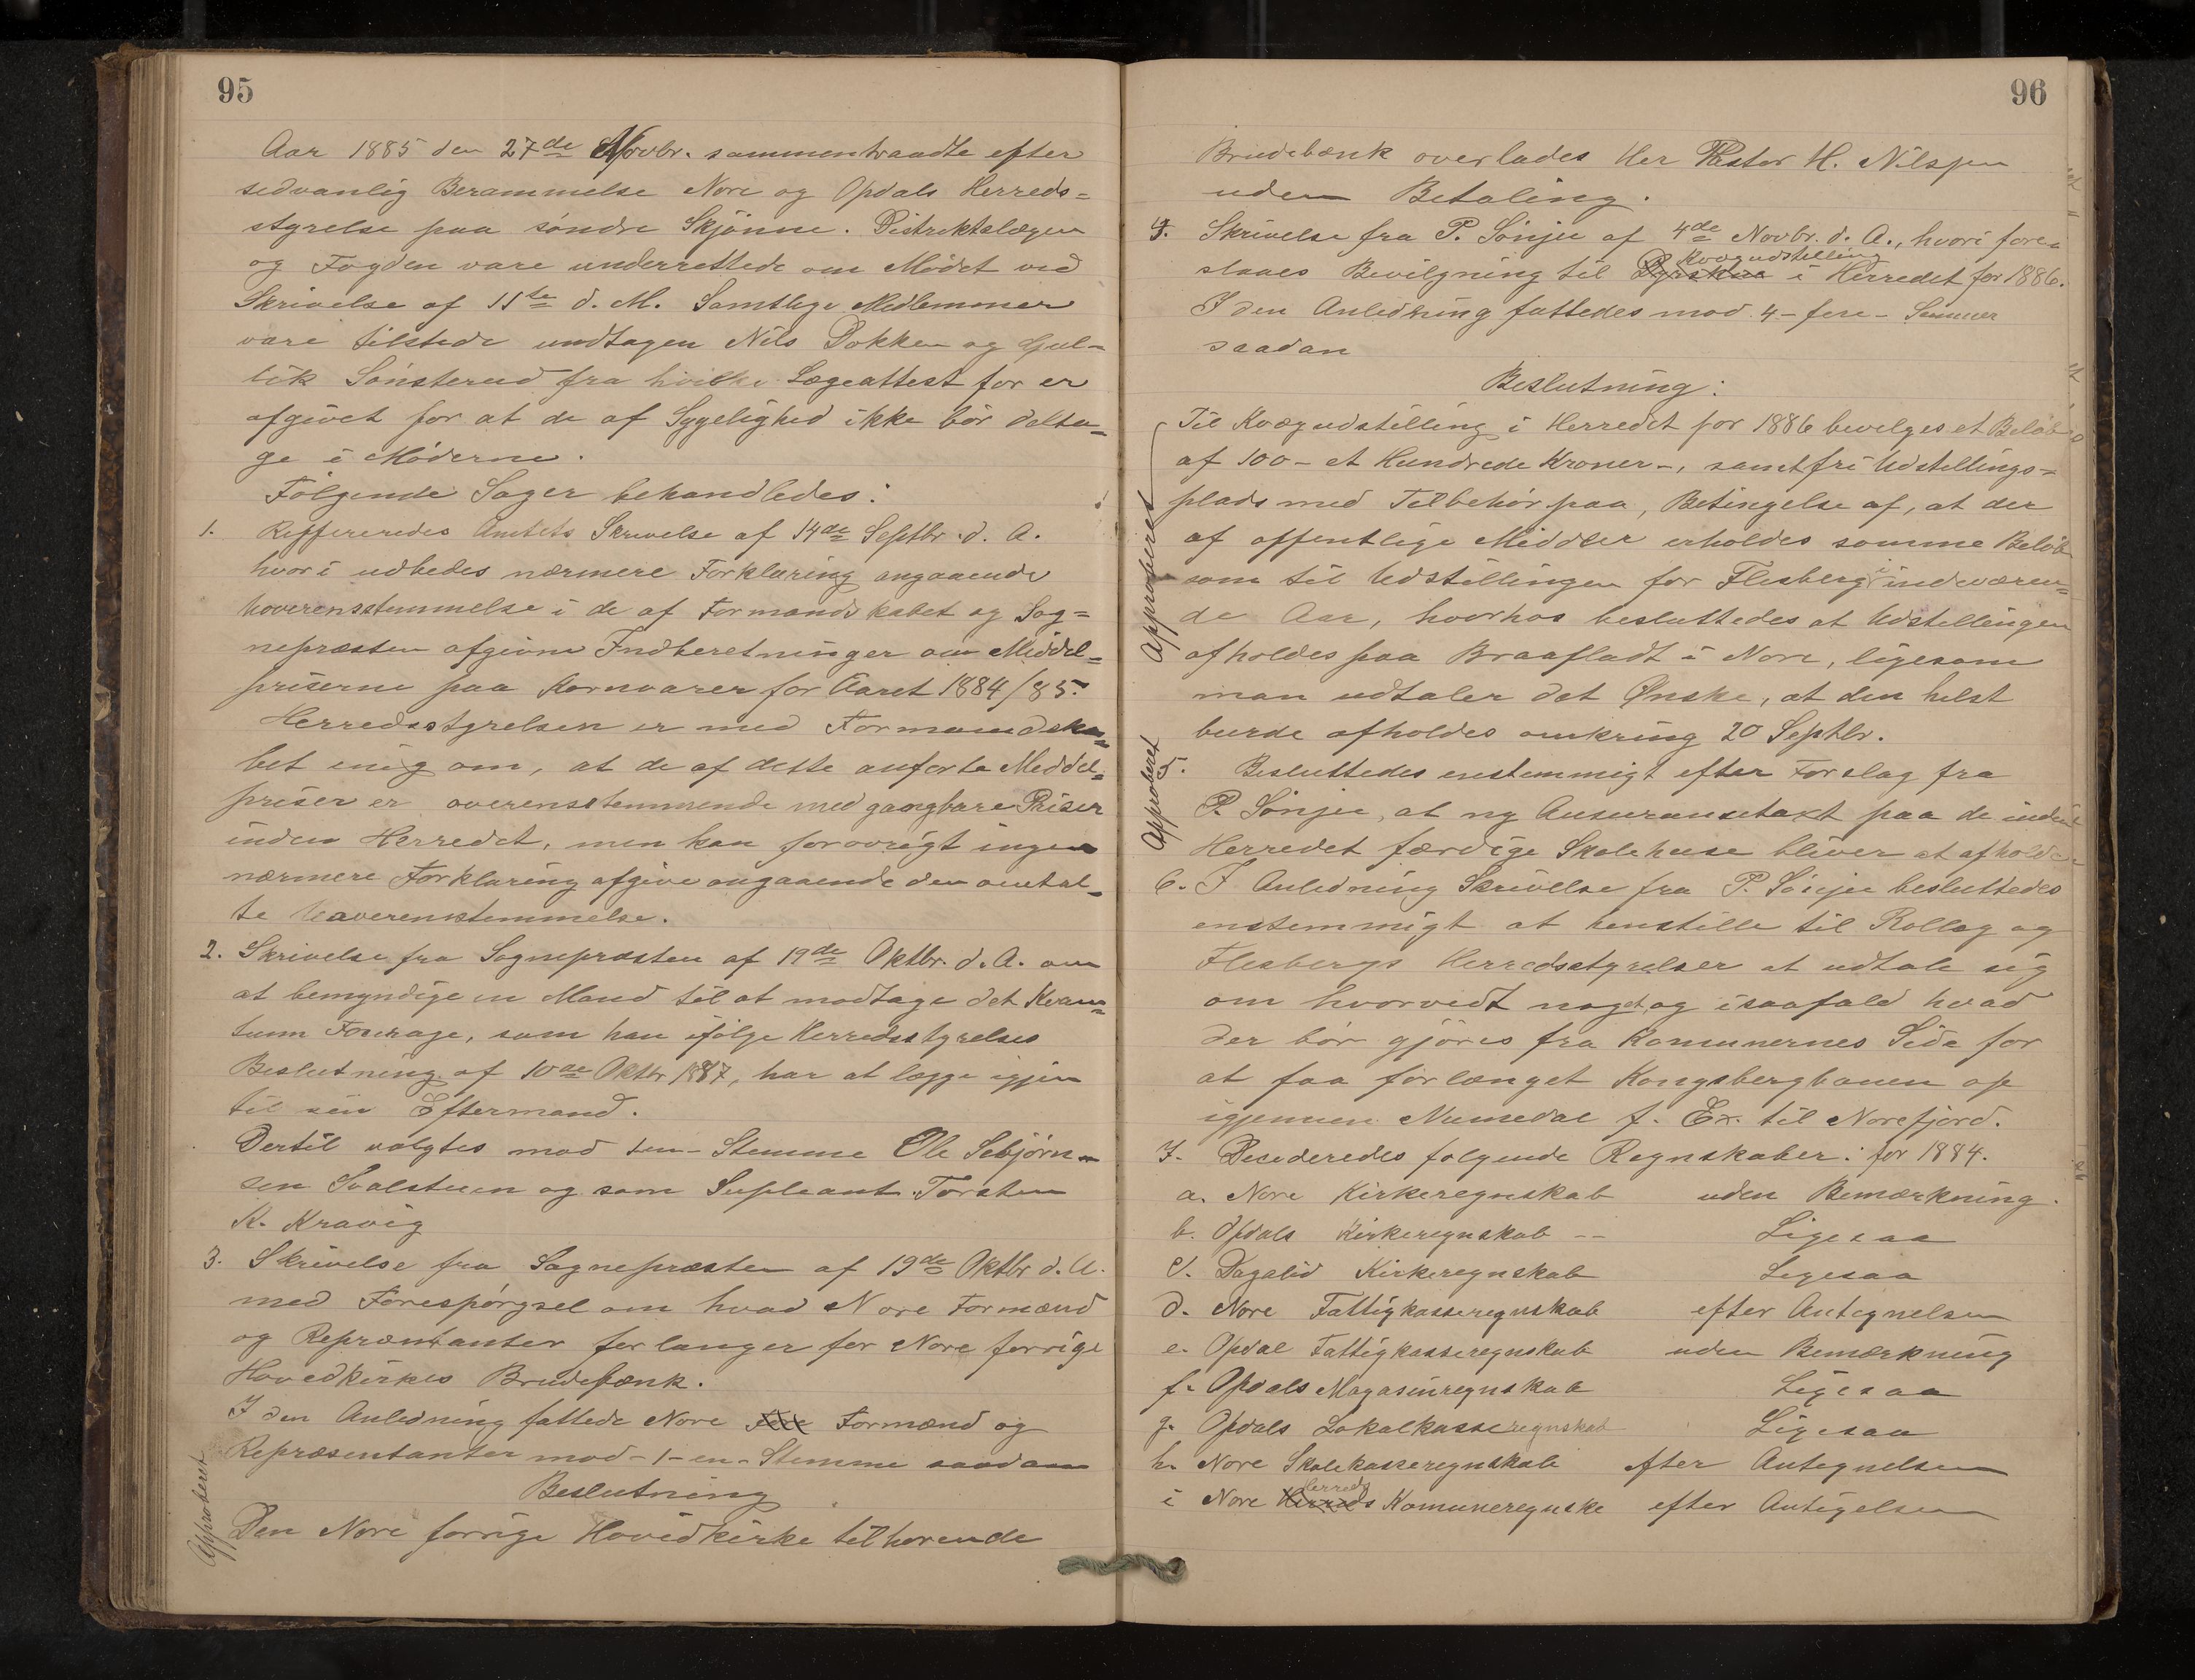 95
Aar 1885 den 27de Novbr. sammentraadte efter
sedvanlig Berammelse Nore og Opdals Herreds=
styrelse paa søndre Skjønne. Distriktslægen
og Fogden vare underrettede om Mødet ved
Skrivelse af 11te d. M. Samtlige Medlemmer
vare tilstede undtagen Nils Dokken og Gul-
lik Sønsterud fra hvilke Lægeattest for er
afgivet for at de af Sygelighed ikke bør delta=
ge i Møderne.
Følgende Sager behandledes:
1. Reffereredes Amtets Skrivelse af 14de Septbr. d. A.
hvori udbedes nærmere Forklaring angaaende
Uoverensstemmelse i de af Formandskabet og Sog=
nepræsten afgivne Indberetninger om Middel=
priserne paa Kornvarer for Aaret 1884/85.
Herredsstyrelsen er med Formandska=
bet enig om, at de af dette anførte Middel=
priser er overensstemmende med gangbare Priser
inden Herredet, men kan forøvrigt ingen
nærmere Forklaring afgive angaaende den omtal=
te Uaverensstemmelse.
2. Skrivelse fra Sognepræsten af 19de Oktbr. d. A. om
at bemyndige en Mand til at modtage det Kvan=
tum Fourage, som han ifølge Herredsstyrelses
Beslutning af 10de Oktbr 1887, har at lægge igjen
til sin Eftermand.
Dertil valgtes mod en-Stemme Ole Sebjørn=
sen Svalstuen og som Supleant Torsten
K. Kravig
3. Skrivelse fra Sognepræsten af 19de Oktbr d. A.
med Forespørgsel om hvad Nore Formænd
og Repræntanter forlanger for Nore forrige
Hovedkirkes Brudebænk.
I den Anledning fattede Nore Formænd og
Repræsentanter mod-1-en-Stemme saadan
Beslutning
Approberet
Den Nore forrige Hovedkirke tilhørende
96
Brudebænk overlades Her Pastor H. Nilssen
uden Betaling.
4. Skrivelse fra P. Sønjer af 4de Novbr. d. A., hvori fore=
slaaes Bevilgning til Dyrskue Kvægudstilling i Herredet for 1886.
I den Anledning fattedes mod 4-fire-Stemmer
saadan
Beslutning:
Approberet
Til Kvægudstilling i Herredet for 1886 bevilges et Beløb
af 100-et Hundrede Kroner-, samt fri Udstillings=
plads med Tilbehør paa, Betingelse af, at der
af offentlige Midler erholdes samme Beløb
som til Udstillingen for Flesberg i indeværen=
de Aar, hvorhos besluttedes at Udstillingen
afholdes paa Braafladt i Nore, ligesom
man udtaler det Ønske, at den helst
burde afholdes omkring 20 Septbr.
Approberet
5. Besluttedes enstemmigt efter Forslag fra
P. Sønjer, at ny Assurancetakt paa de inden
Herredet færdige Skolehuse bliver at afholde
6. I Anledning Skrivelse fra P. Sønjer besluttedes
enstemmigt at henstille til Rollag og
Flesbergs Herredsstyrelser at udtale sig
om hvorvidt noget, og isaafald hvad
der bør gjøres fra Komunernes Side for
at faa forlænget Kongsbergbanen op
igjennem Numedal f. Ex. til Norefjord.
7. Desederedes følgende Regnskaber: for 1884.
a. Nore Kirkeregnskab uden Bemærkning.
b. Opdals Kirkeregnskab -- Ligesaa
c. Dagalid Kirkeregnskab Ligesaa
d. Nore Fattigkasseregnskab efter Antegnelsen
e. Opdal Fattigkasseregnskab uden Bemærkning
f. Opdals Magasinregnskab Ligesaa
g. Opdals Lokalkasseregnskab Ligesaa
h. Nore Skolekasseregnskab efter Antegnelsen
i Nore Herreds Herreds Komuneregnske efter Antigelsen